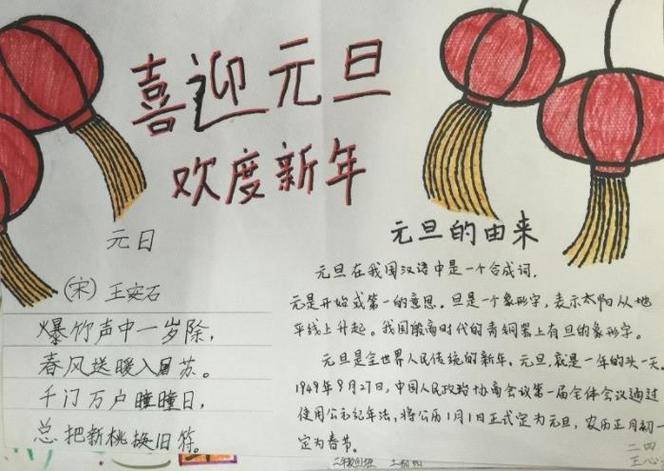 喜迎元旦
欢度新年
元日
(宋) 王安石
爆竹声中一岁除,
春风送暖入屠苏。
千门万户曈曈日,
总把新桃换旧符。
元旦的由来
元旦在我国汉语中是一个合成词.
元是开始或第一的意思.旦是一个象形字,表示太阳从地
平线上升起。我国殷商时代的青铜器上有旦的象形字。
元旦是全世界人民传统的新年.元旦,就是一年的头一天.
1949年9月27日,中国人民政治协商会议第一届全体会议通过
使用公元纪年法,将公历1月1日正式定为元旦,农历正月初一
定为春节。
二四